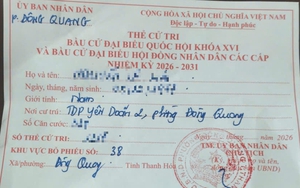 ỦY BAN NHÂN DÂN
P. ĐÔNG QUANG
CỘNG HÒA XÃ HỘI CHỦ NGHĨA VIỆT NAM
Độc lập - Tự do - Hạnh phúc
THẺ CỬ TRI
BẦU CỬ ĐẠI BIỂU QUỐC HỘI KHÓA XVI
VÀ BẦU CỬ ĐẠI BIỂU HỘI ĐỒNG NHÂN DÂN CÁC CẤP
NHIỆM KỲ 2026 - 2031
Họ và tên:
Ngày, tháng, năm sinh:
Giới tính: Nam
Nơi cư trú: TDP Yên Doãn 2, phường Đông Quang
Số Căn cước:
SỐ THẺ CỬ TRI:
KHU VỰC BỎ PHIẾU SỐ: 38
Xã/phường: Đông Quang Tỉnh Thanh Hóa
2026
TM. ỦY BAN NHÂN DÂN
CHỦ TỊCH